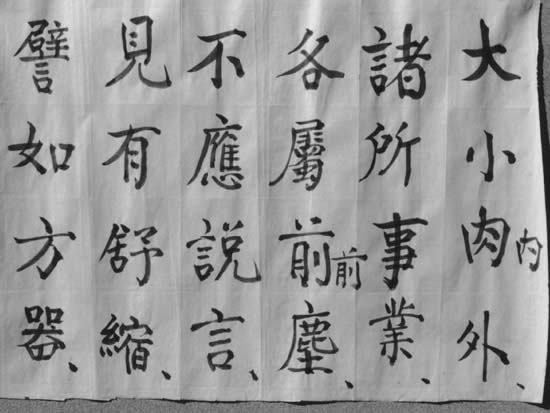 大小肉内外、
諸所事業、
各屬前前塵、
不應說言、
見有舒縮、
譬如方器、